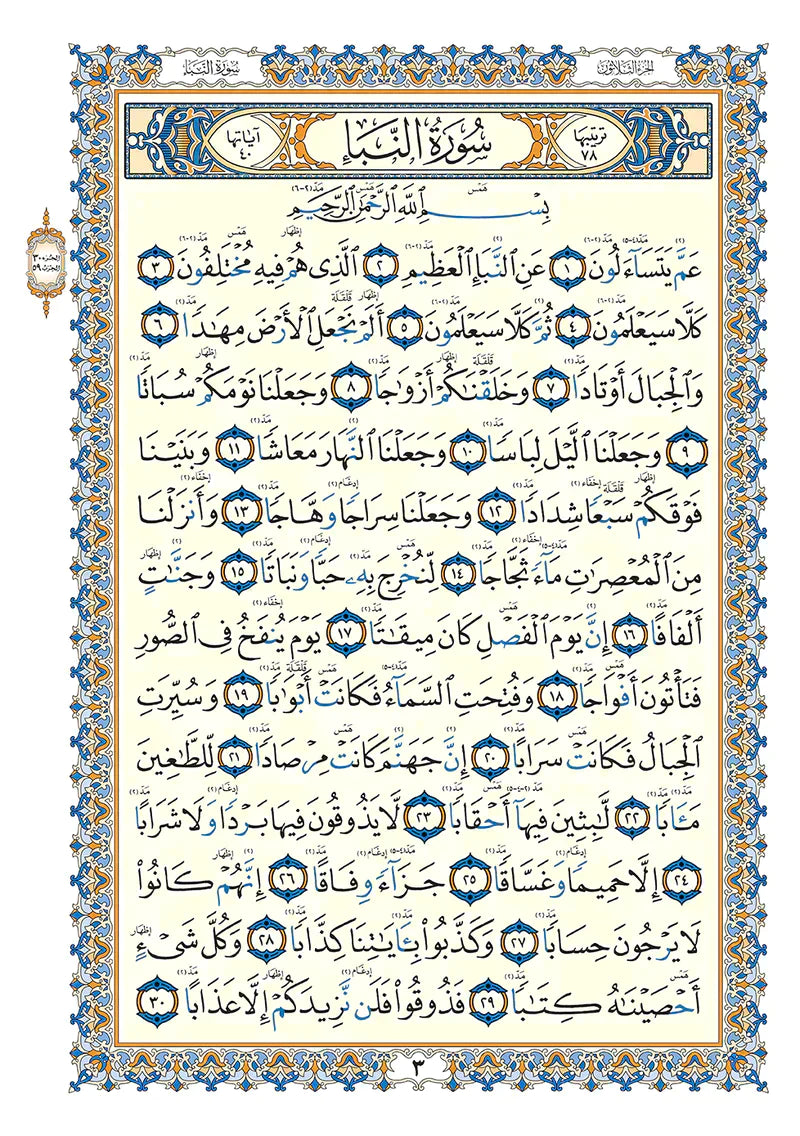 الجزء الثلاثون سورة النبإ
ترتيبها ٧٨ سُورَةُ النَّبَإِ آياتها ٤٠
بِسْمِ ٱللَّهِ ٱلرَّحْمَٰنِ ٱلرَّحِيمِ
الجزء ٣٠
الحزب ٥٩
عَمَّ يَتَسَآءَلُونَ ١ عَنِ ٱلنَّبَإِ ٱلْعَظِيمِ ٢ ٱلَّذِى هُمْ فِيهِ مُخْتَلِفُونَ ٣
كَلَّا سَيَعْلَمُونَ ٤ ثُمَّ كَلَّا سَيَعْلَمُونَ ٥ أَلَمْ نَجْعَلِ ٱلْأَرْضَ مِهَٰدًا ٦
وَٱلْجِبَالَ أَوْتَادًا ٧ وَخَلَقْنَٰكُمْ أَزْوَٰجًا ٨ وَجَعَلْنَا نَوْمَكُمْ سُبَاتًا
٩ وَجَعَلْنَا ٱلَّيْلَ لِبَاسًا ١٠ وَجَعَلْنَا ٱلنَّهَارَ مَعَاشًا ١١ وَبَنَيْنَا
فَوْقَكُمْ سَبْعًا شِدَادًا ١٢ وَجَعَلْنَا سِرَاجًا وَهَّاجًا ١٣ وَأَنزَلْنَا
مِنَ ٱلْمُعْصِرَٰتِ مَآءً ثَجَّاجًا ١٤ لِّنُخْرِجَ بِهِۦ حَبًّا وَنَبَاتًا ١٥ وَجَنَّٰتٍ
أَلْفَافًا ١٦ إِنَّ يَوْمَ ٱلْفَصْلِ كَانَ مِيقَٰتًا ١٧ يَوْمَ يُنفَخُ فِى ٱلصُّورِ
فَتَأْتُونَ أَفْوَاجًا ١٨ وَفُتِحَتِ ٱلسَّمَآءُ فَكَانَتْ أَبْوَٰبًا ١٩ وَسُيِّرَتِ
ٱلْجِبَالُ فَكَانَتْ سَرَابًا ٢٠ إِنَّ جَهَنَّمَ كَانَتْ مِرْصَادًا ٢١ لِّلطَّٰغِينَ
مَـَٔابًا ٢٢ لَّٰبِثِينَ فِيهَآ أَحْقَابًا ٢٣ لَّا يَذُوقُونَ فِيهَا بَرْدًا وَلَا شَرَابًا
٢٤ إِلَّا حَمِيمًا وَغَسَّاقًا ٢٥ جَزَآءً وِفَاقًا ٢٦ إِنَّهُمْ كَانُوا۟
لَا يَرْجُونَ حِسَابًا ٢٧ وَكَذَّبُوا۟ بِـَٔايَٰتِنَا كِذَّابًا ٢٨ وَكُلَّ شَىْءٍ
أَحْصَيْنَٰهُ كِتَٰبًا ٢٩ فَذُوقُوا۟ فَلَن نَّزِيدَكُمْ إِلَّا عَذَابًا ٣٠
٣